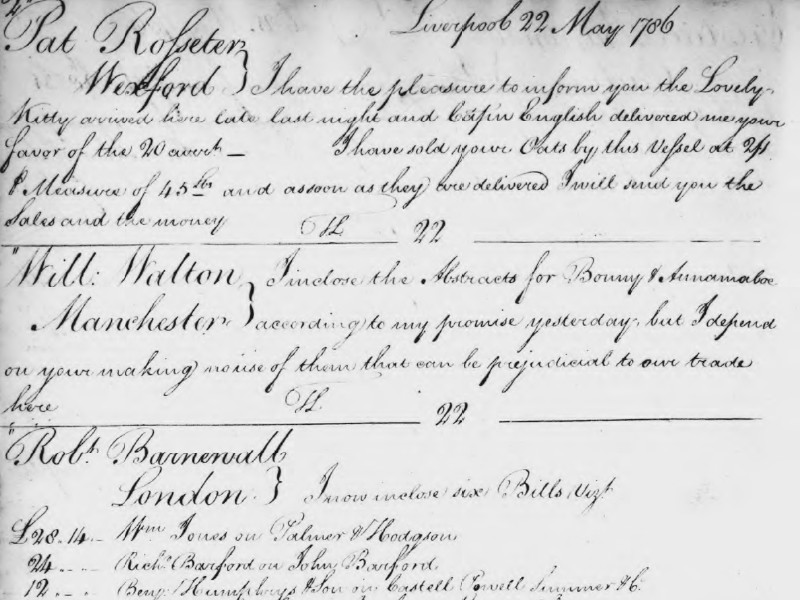 Liverpool 22 May 1786
Pat Rosseter
Wexford } I have the pleasure to inform you the Lovely
Kitty arrived here late last night and Capn English delivered me your
favor of the 20 currt — I have sold your Oats by this Vessel at 2/1
℔ Measure of 45 lbs and as soon as they are delivered I will send you the
Sales and the money
22
" Will: Walton } I inclose the Abstracts for Bonny & Annamaboe
Manchester } according to my promise yesterday, but I depend
on your making no use of them that can be prejudicial to our trade
here
22
" Robt. Barnewall
London } I now inclose six Bills Vizt
£28.14 - Wm Jones on Palmer & Hodgson
24 - - Richd Barford on John Barford
12 - - Benj: Humphrys & Son on Castell Powell Summer & Co